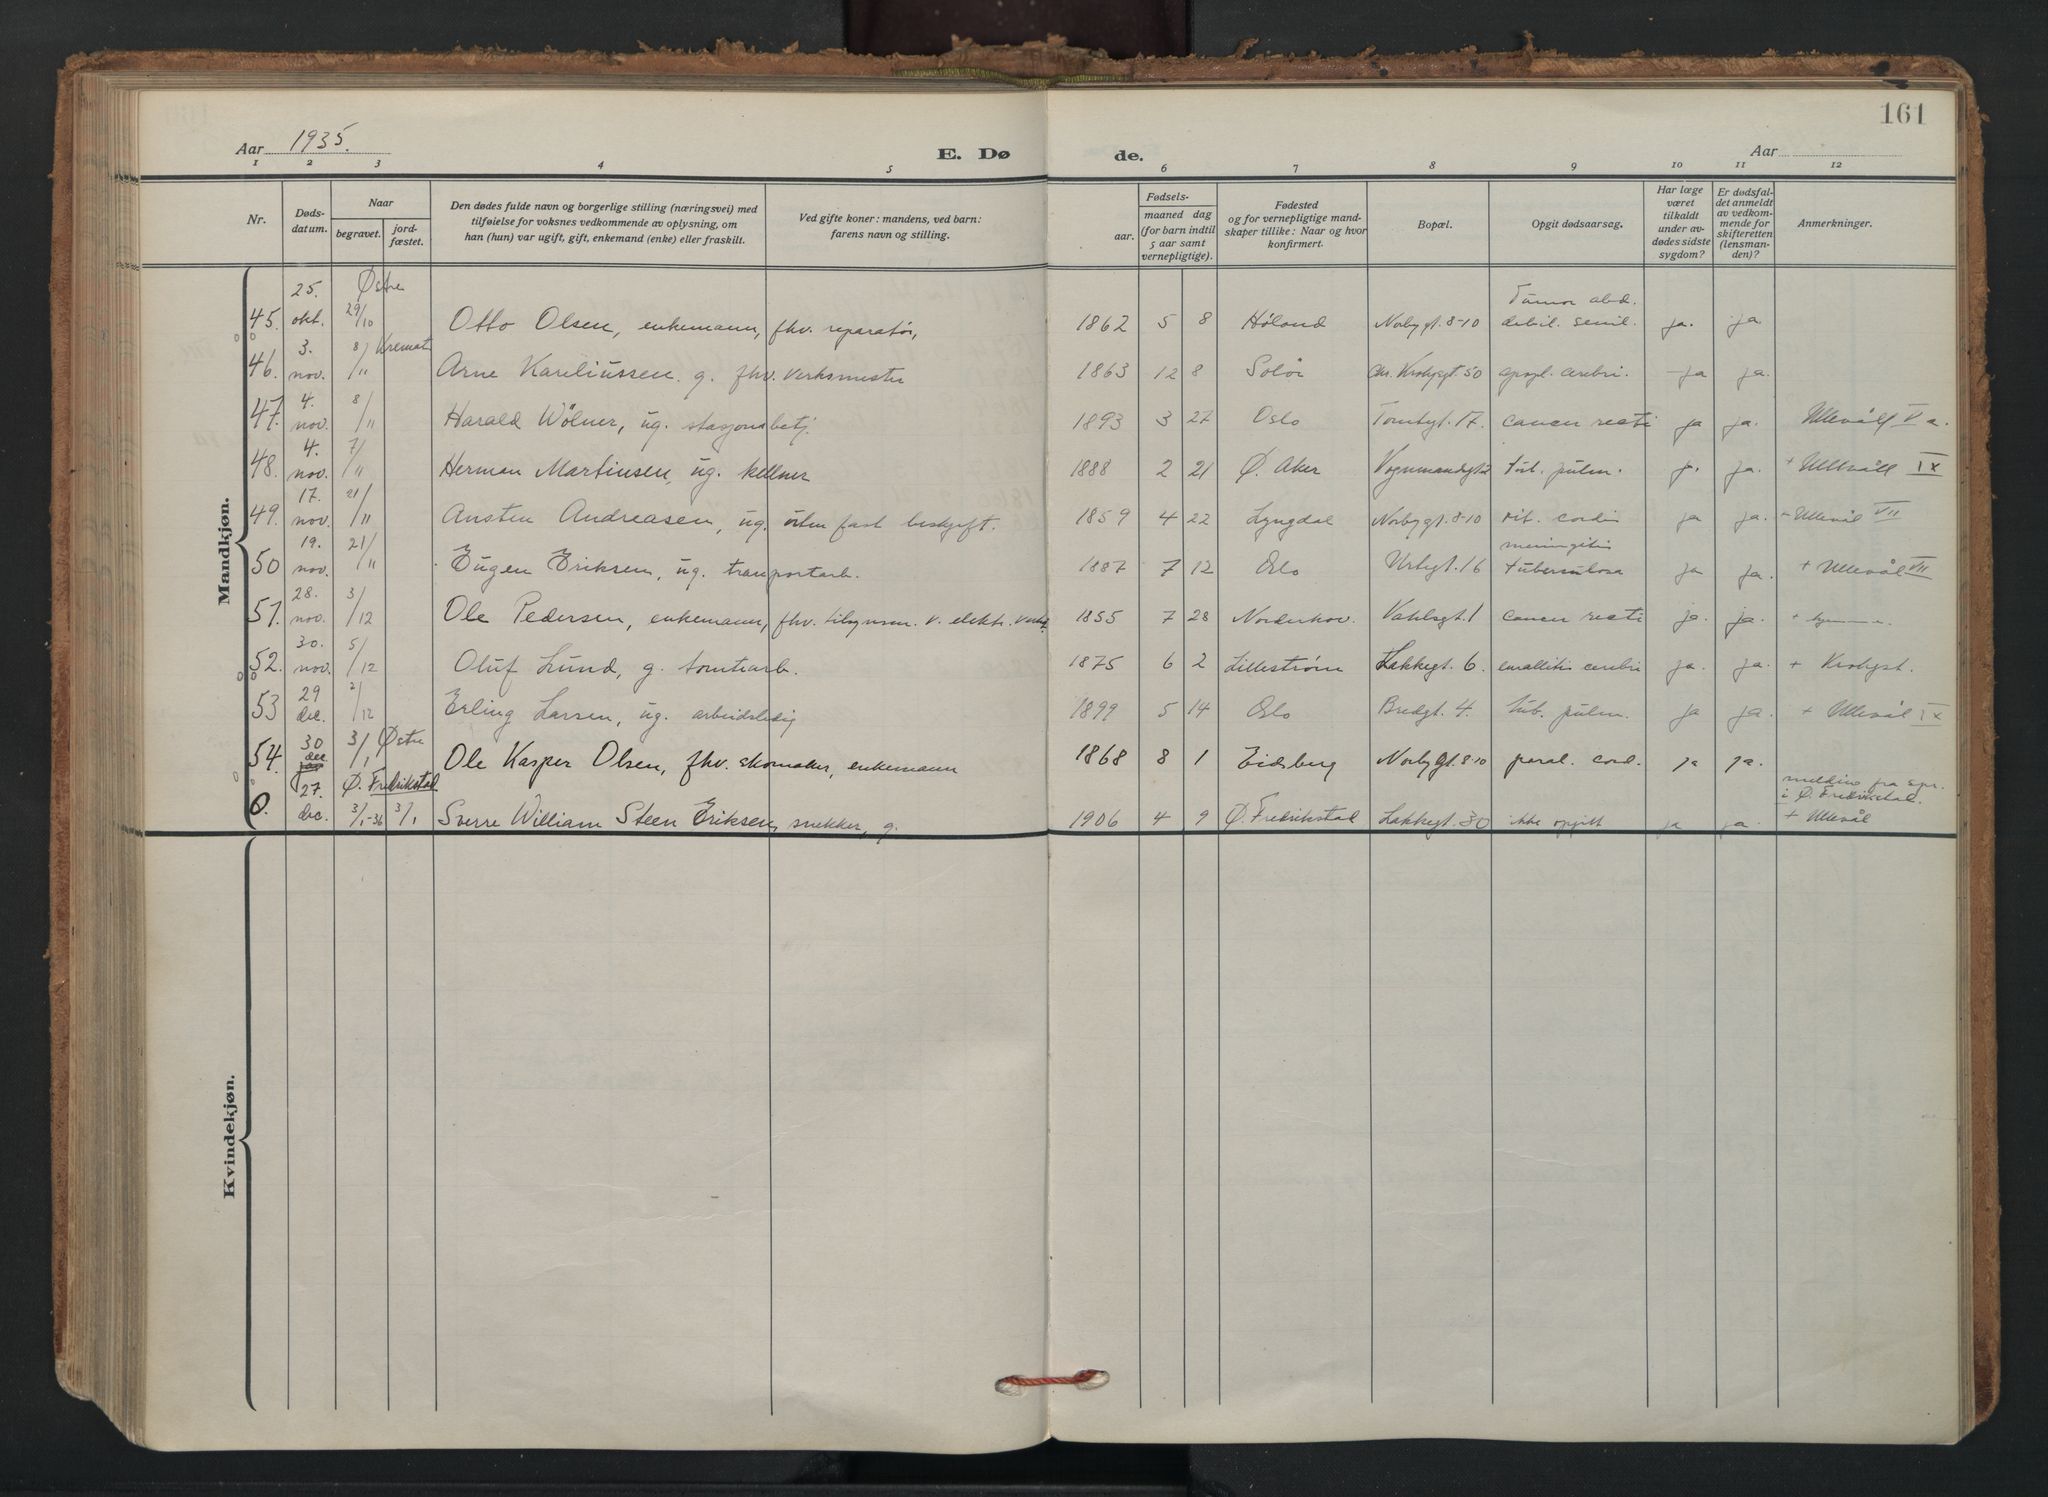 161
Aar 1935.
E. Døde.
Aar
1 2 3 4 5 6 7 8 9 10 11 12
Nr.
Døds-
datum.
Naar
begravet.
jord-
fæstet.
Den dødes fulde navn og borgerlige stilling (næringsvei) med
tilføielse for voksnes vedkommende av oplysning, om
han (hun) var ugift, gift, enkemand (enke) eller fraskilt.
Ved gifte koner: mandens, ved barn:
farens navn og stilling.
Fødsels-
aar.
maaned dag
(for barn indtil
5 aar samt
vernepligtige).
Fødested
og for vernepligtige mand-
skaper tillike: Naar og hvor
konfirmert.
Bopæl.
Opgit dødsaarsag.
Har læge
været
tilkaldt
under av-
dødes sidste
sygdom?
Er dødsfal-
det anmeldt
av vedkom-
mende for
skifteretten
(lensman-
den)?
Anmerkninger.
Mandkjøn.
25. Østre Tumor abd.
45. okt. 29/10 Otto Olsen, enkemann, fhv. reparatør, 1862 5 8 Høland Norbygt. 8-10 debil. senil. ja. ja.
3. Kremat
46. nov. 8/11 Arne Kareliussen. g. fhv. verksmester 1863 12 8 Solør Chr. Krohgsgt. 50 apopl. cerebri. ja ja.
4.
47. nov. 8/11 Harald Wølner, ug. stasjonsbetj. 1893 3 27 Oslo Tomtegt. 17. cancer recti ja ja. Ullevål V a.
4.
48. nov. 7/11 Herman Martinsen, ug. kellner 1888 2 21 Ø. Aker Vognmandsgt 2 tub. pulm. ja. ja. + Ullevål IX
17.
49. nov. 21/11 Ansten Andreasen, ug. uten fast beskjeft. 1859 4 22 Lyngdal Norbygt. 8-10 vit. cordis ja ja. + Ullevål VII
19. meningitis
50 nov. 21/11 Eugen Eriksen, ug. transportarb. 1887 7 12 Oslo Urtegt. 16 tuberculosa ja ja. + Ullevål VII
28.
51. nov. 3/12 Ole Pedersen, enkemann, fhv. tilsynsm. v. elektr. verk. 1855 7 28 Norderhov. Vahlsgt. 1 cancer recti ja. ja. + hjemme.
30.
52. nov. 5/12 Oluf Lund, g. tomtearb. 1875 6 2 Lillestrøm Lakkegt. 6. emollitio cerebri ja. ja. + Krohgst.
29
53 dec. 2/12 Erling Larsen, ug. arbeidsledig 1899 5 14 Oslo Bredgt. 4. tub. pulm. ja ja. + Ullevål IX
30 Østre
54. dec. 3/1 Ole Kasper Olsen, fhv. skomaker, enkemann 1868 8 1 Eidsberg Norbygt. 8-10 paral. cord. ja ja.
27. Ø. Fredrikstad melding fra spr.
i Ø. Fredrikstad.
0. dec. 3/1-36 3/1 Sverre William Steen Eriksen, snekker, g. 1906 4 9 Ø. Fredrikstad Lakkegt. 30 ikke opgitt ja ja. + Ullevål
Kvindekjøn.